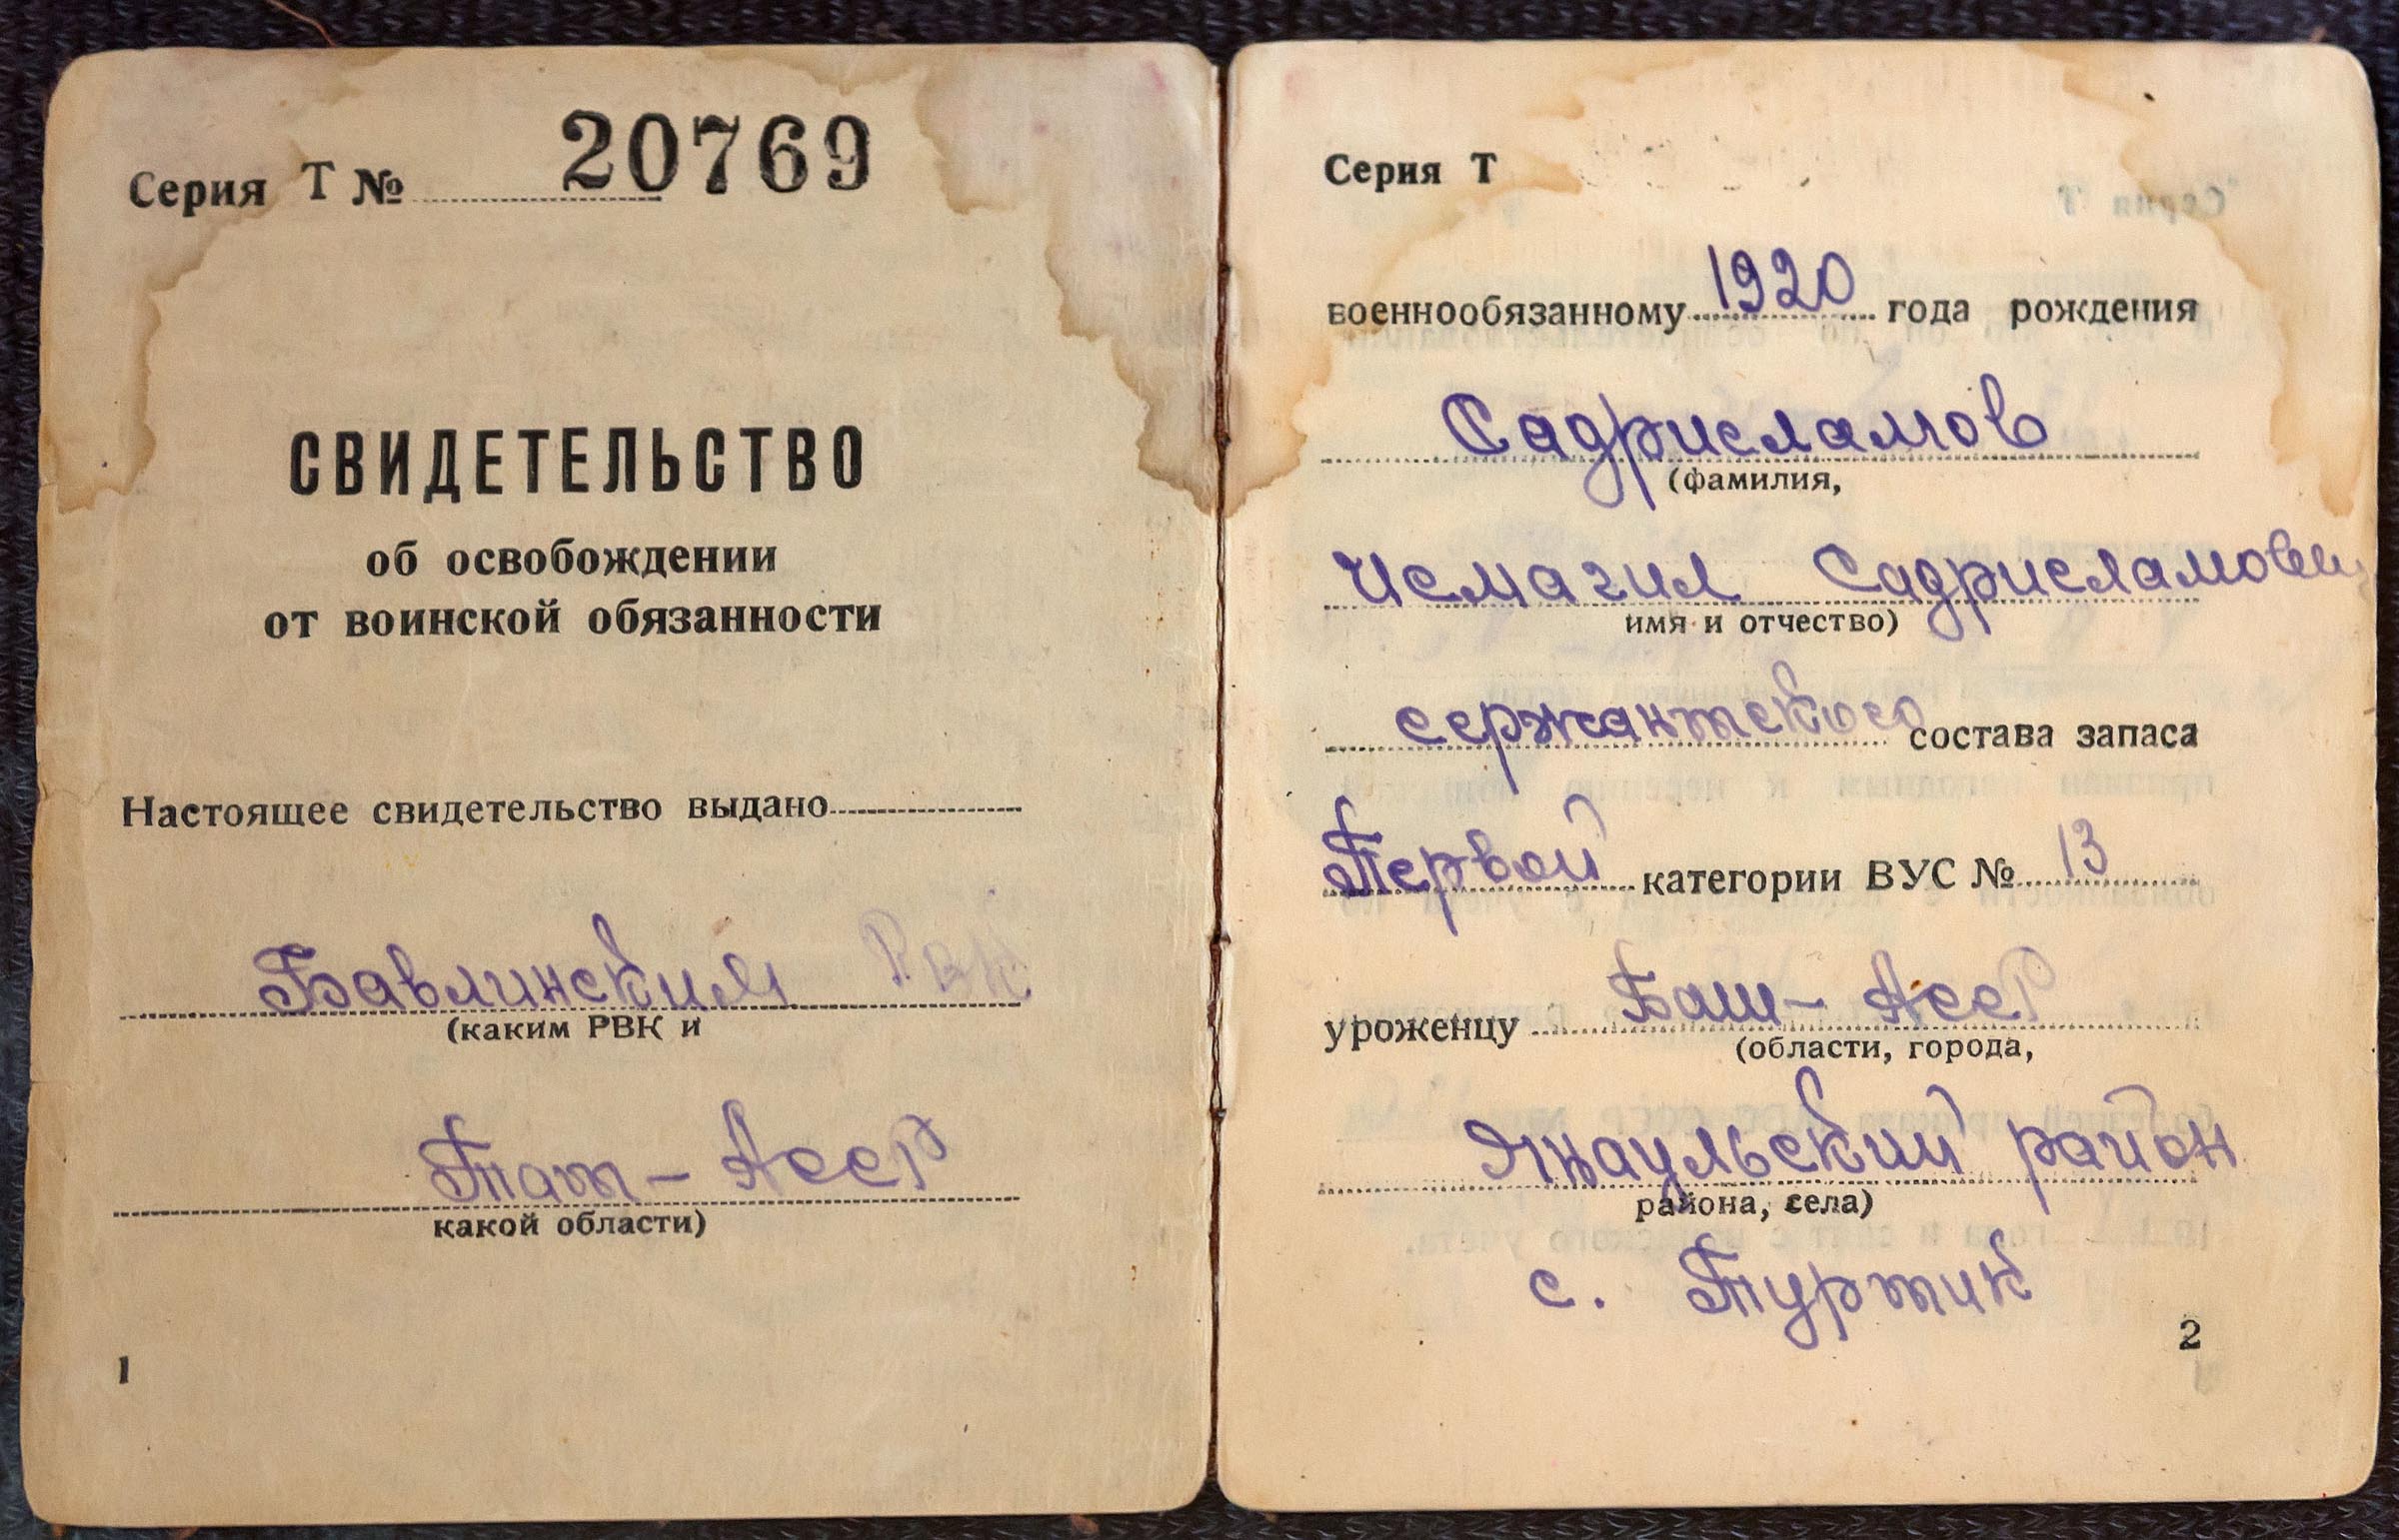 Серия Т № 20769
СВИДЕТЕЛЬСТВО
об освобождении
от воинской обязанности
Настоящее свидетельство выдано
Бавлинским РВК
(каким РВК и
Тат-АССР
какой области)
1
Серия Т
военнообязанному 1920 года рождения
Садрисламов
(фамилия,
Исмагил Садрисламович
имя и отчество)
сержантского состава запаса
Первой категории ВУС № 13
уроженцу Баш-АССР
(области, города,
Янаульский район
района, села)
с. Туртик
2